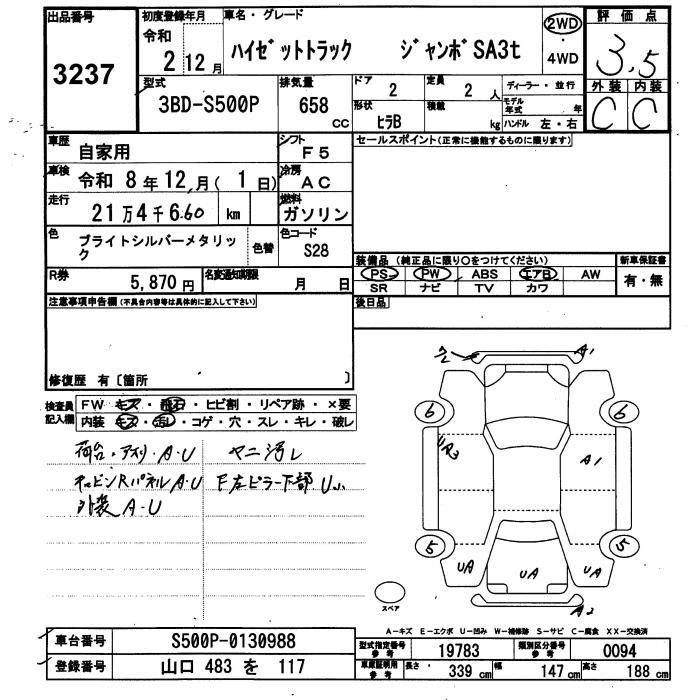 出品番号
3237
初度登録年月
令和
2年12月
車名・グレード
ハイゼットトラック ジャンボSA3t
2WD
・
4WD
評価点
3.5
外装 内装
C C
型式
3BD-S500P
排気量
658
CC
ドア
2
定員
2 人
形状
ヒラB
積載
kg
ディーラー・並行
モデル年式 年
ハンドル 左・右
車歴
自家用
シフト
F5
車検
令和 8年12月(1日)
冷房
AC
走行
21万4千660 km
燃料
ガソリン
色
ブライトシルバーメタリック
色替
色コード
S28
R券
5,870円
名変通知期限
月 日
セールスポイント(正常に機能するものに限ります)
装備品(純正品に限り〇をつけてください)
PS PW ABS エアB AW
SR ナビ TV カワ
新車保証書
有・無
後日品
注意事項申告欄(不具合内容等は具体的に記入して下さい)
修復歴 有〔箇所 〕
検査員記入欄
FW キズ・飛石・ヒビ割・リペア跡・×要
内装 キズ・汚レ・コゲ・穴・スレ・キレ・破レ
荷台・アオリ・A・U
ヤニ汚レ
F左ピラー下部 U小
外装 A・U
A1
6 6
UA3
A1
5 5
UA UA UA
A2
スペア
A-キズ E-エクボ U-凹み W-補修跡 S-サビ C-腐食 XX-交換済
車台番号
S500P-0130988
登録番号
山口 483 を 117
型式指定番号 参考
19783
類別区分番号 参考
0094
車庫証明用 参考
長さ 339 cm
幅 147 cm
高さ 188 cm